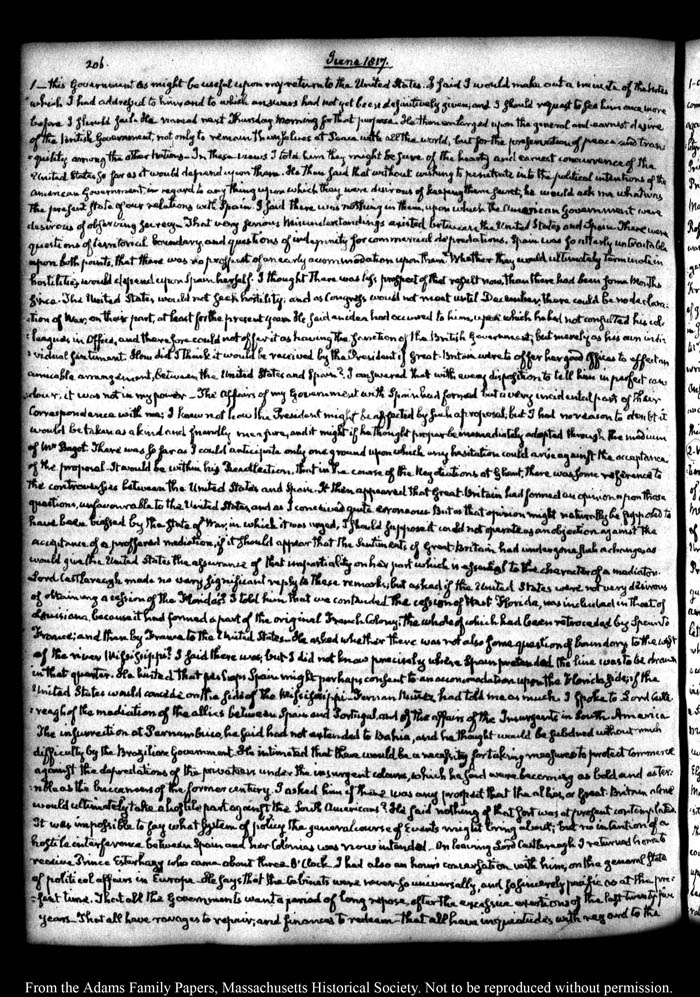 206.
June 1817.
1— this Government as might be useful upon my return to the United States. I said I would make out a minute of the Notes
which I had addressed to him, and to which answers had not yet been definitively given; and I should request to see him once more
before I should for the usual next Thursday Morning for that purpose. He then enlarged upon the general and earnest desire
of the British Government, not only to remain themselves at Peace with all the world, but for the preservation of peace and tran-
:quility among the other Nations— In these views I told him they might be sure of the hearty and earnest concurrence of the
United States so far as it would depend upon them. He then said that without wishing to penetrate into the political intentions of the
American Government in regard to any thing upon which they were desirous of keeping them secret; he would ask me what was
the present State of our relations with Spain. I said there was nothing in them, upon which the American Government were
desirous of observing secrecy. That very serious Misunderstandings existed between the United States and Spain. There were
questions of territorial boundary, and questions of indemnity for commercial depredations. Spain was so utterly untractable
upon both points, that there was no prospect of an early accommodation upon them. Whether they would ultimately terminate in
hostilities, would depend upon Spain herself. I thought there was less prospect of that result now, than there had been some Months
since. The United States would not seek hostility; and as Congress would not meet until December, there could be no declara-
:tion of War, on their part, at least for the present year. He said an idea had occurred to him, upon which he had not consulted his col-
:leagues in Office, and therefore could not offer it as having the sanction of the British Government; but merely as his own indi-
:vidual sentiment. How did I think it would be received by the President if Great-Britain were to offer her good offices to effect an
amicable arrangement, between the United States and Spain? I answered that with every disposition to tell him in perfect can-
:dour, it was not in my power— The affairs of my Government with Spain had formed but a very incidental part of their
Correspondence with me; I knew not how the President might be affected by such a proposal; but I had no reason to doubt it
would be taken as a kind and friendly measure, and it might if he thought proper be immediately adopted through the medium
of Mr Bagot. There was so far as I could anticipate only one ground upon which any hesitation could arise against the acceptance
of the proposal— It would be within his Recollection, that in the course of the Negotiations at Ghent, there was some reference to
the controversies between the United States and Spain. It then appeared that Great-Britain had formed an opinion upon those
questions, unfavourable to the United States, and as I conceived quite erroneous. But as that opinion might naturally be supposed to
have been biassed by the State of War, in which it was urged, I should suppose it could not operate as an objection against the
acceptance of a proffered mediation, if it should appear that the Sentiments of Great-Britain had undergone such a change as
would give the United States the assurance of that impartiality on her part which is essential to the character of a mediator.
Lord Castlereagh made no very significant reply to these remarks; but asked if the United States were not very desirous
of obtaining a cession of the Floridas? I told him that we contended the cession of West Florida, was included in that of
Louisiana, because it had formed a part of the original French Colony; the whole of which had been retroceded by Spain to
France; and then by France to the United States— He asked whether there was not also some question of boundary to the west
of the river Mississippi? I said there was; but I did not know precisely where Spain pretended the line was to be drawn
in that quarter. He hinted that perhaps Spain might perhaps consent to an accommodation upon the Florida side; if the
United States would concede on the side of the Mississippi. Fernan Nuñez had told me as much. I spoke to Lord Castle
:reagh of the mediation of the allies between Spain and Portugal, and of the affairs of the Insurgents in South-America.
The insurrection at Pernambuco, he said had not extended to Bahia, and he thought would be subdued without much
difficulty by the Brazilian Government. He intimated that there would be a necessity for taking measures to protect Commerce
against the depredations of the privateers under the insurgent colours, which he said were becoming as bold and as ter-
:rible as the buccaneers of the former century. I asked him if there was any prospect that the allies, or Great Britain alone
would ultimately take a hostile part against the South Americans? He said nothing of that sort was at present contemplated.
It was impossible to say what System of policy, the general course of Events might bring about; but no intention of a
hostile interference between Spain and her Colonies was now intended— On leaving Lord Castlereagh I returned home to
receive Prince Esterhazy who came about three O'Clock. I had also an hour's conversation with him, on the general State
of political affairs in Europe. He says that the Cabinets were never so universally, and so sincerely pacific as at the pre-
:sent time. That all the Governments want a period of long repose, after the excessive exertions of the last twenty five
years— That all have ravages to repair, and finances to redeem— that all have inquietudes with regard to the
From the Adams Family Papers, Massachusetts Historical Society. Not to be reproduced without permission.